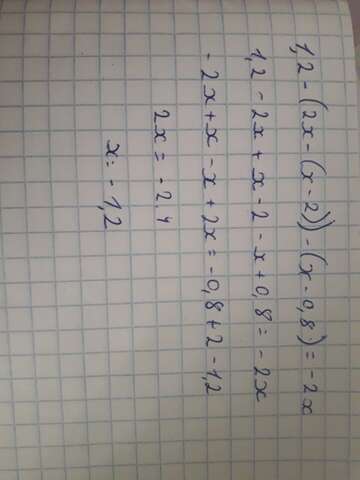 1,2 - (2x - (x - 2)) - (x - 0,8) = -2x
1,2 - 2x + x - 2 - x + 0,8 = -2x
-2x + x - x + 2x = -0,8 + 2 - 1,2
2x = -2.4
x = -1,2